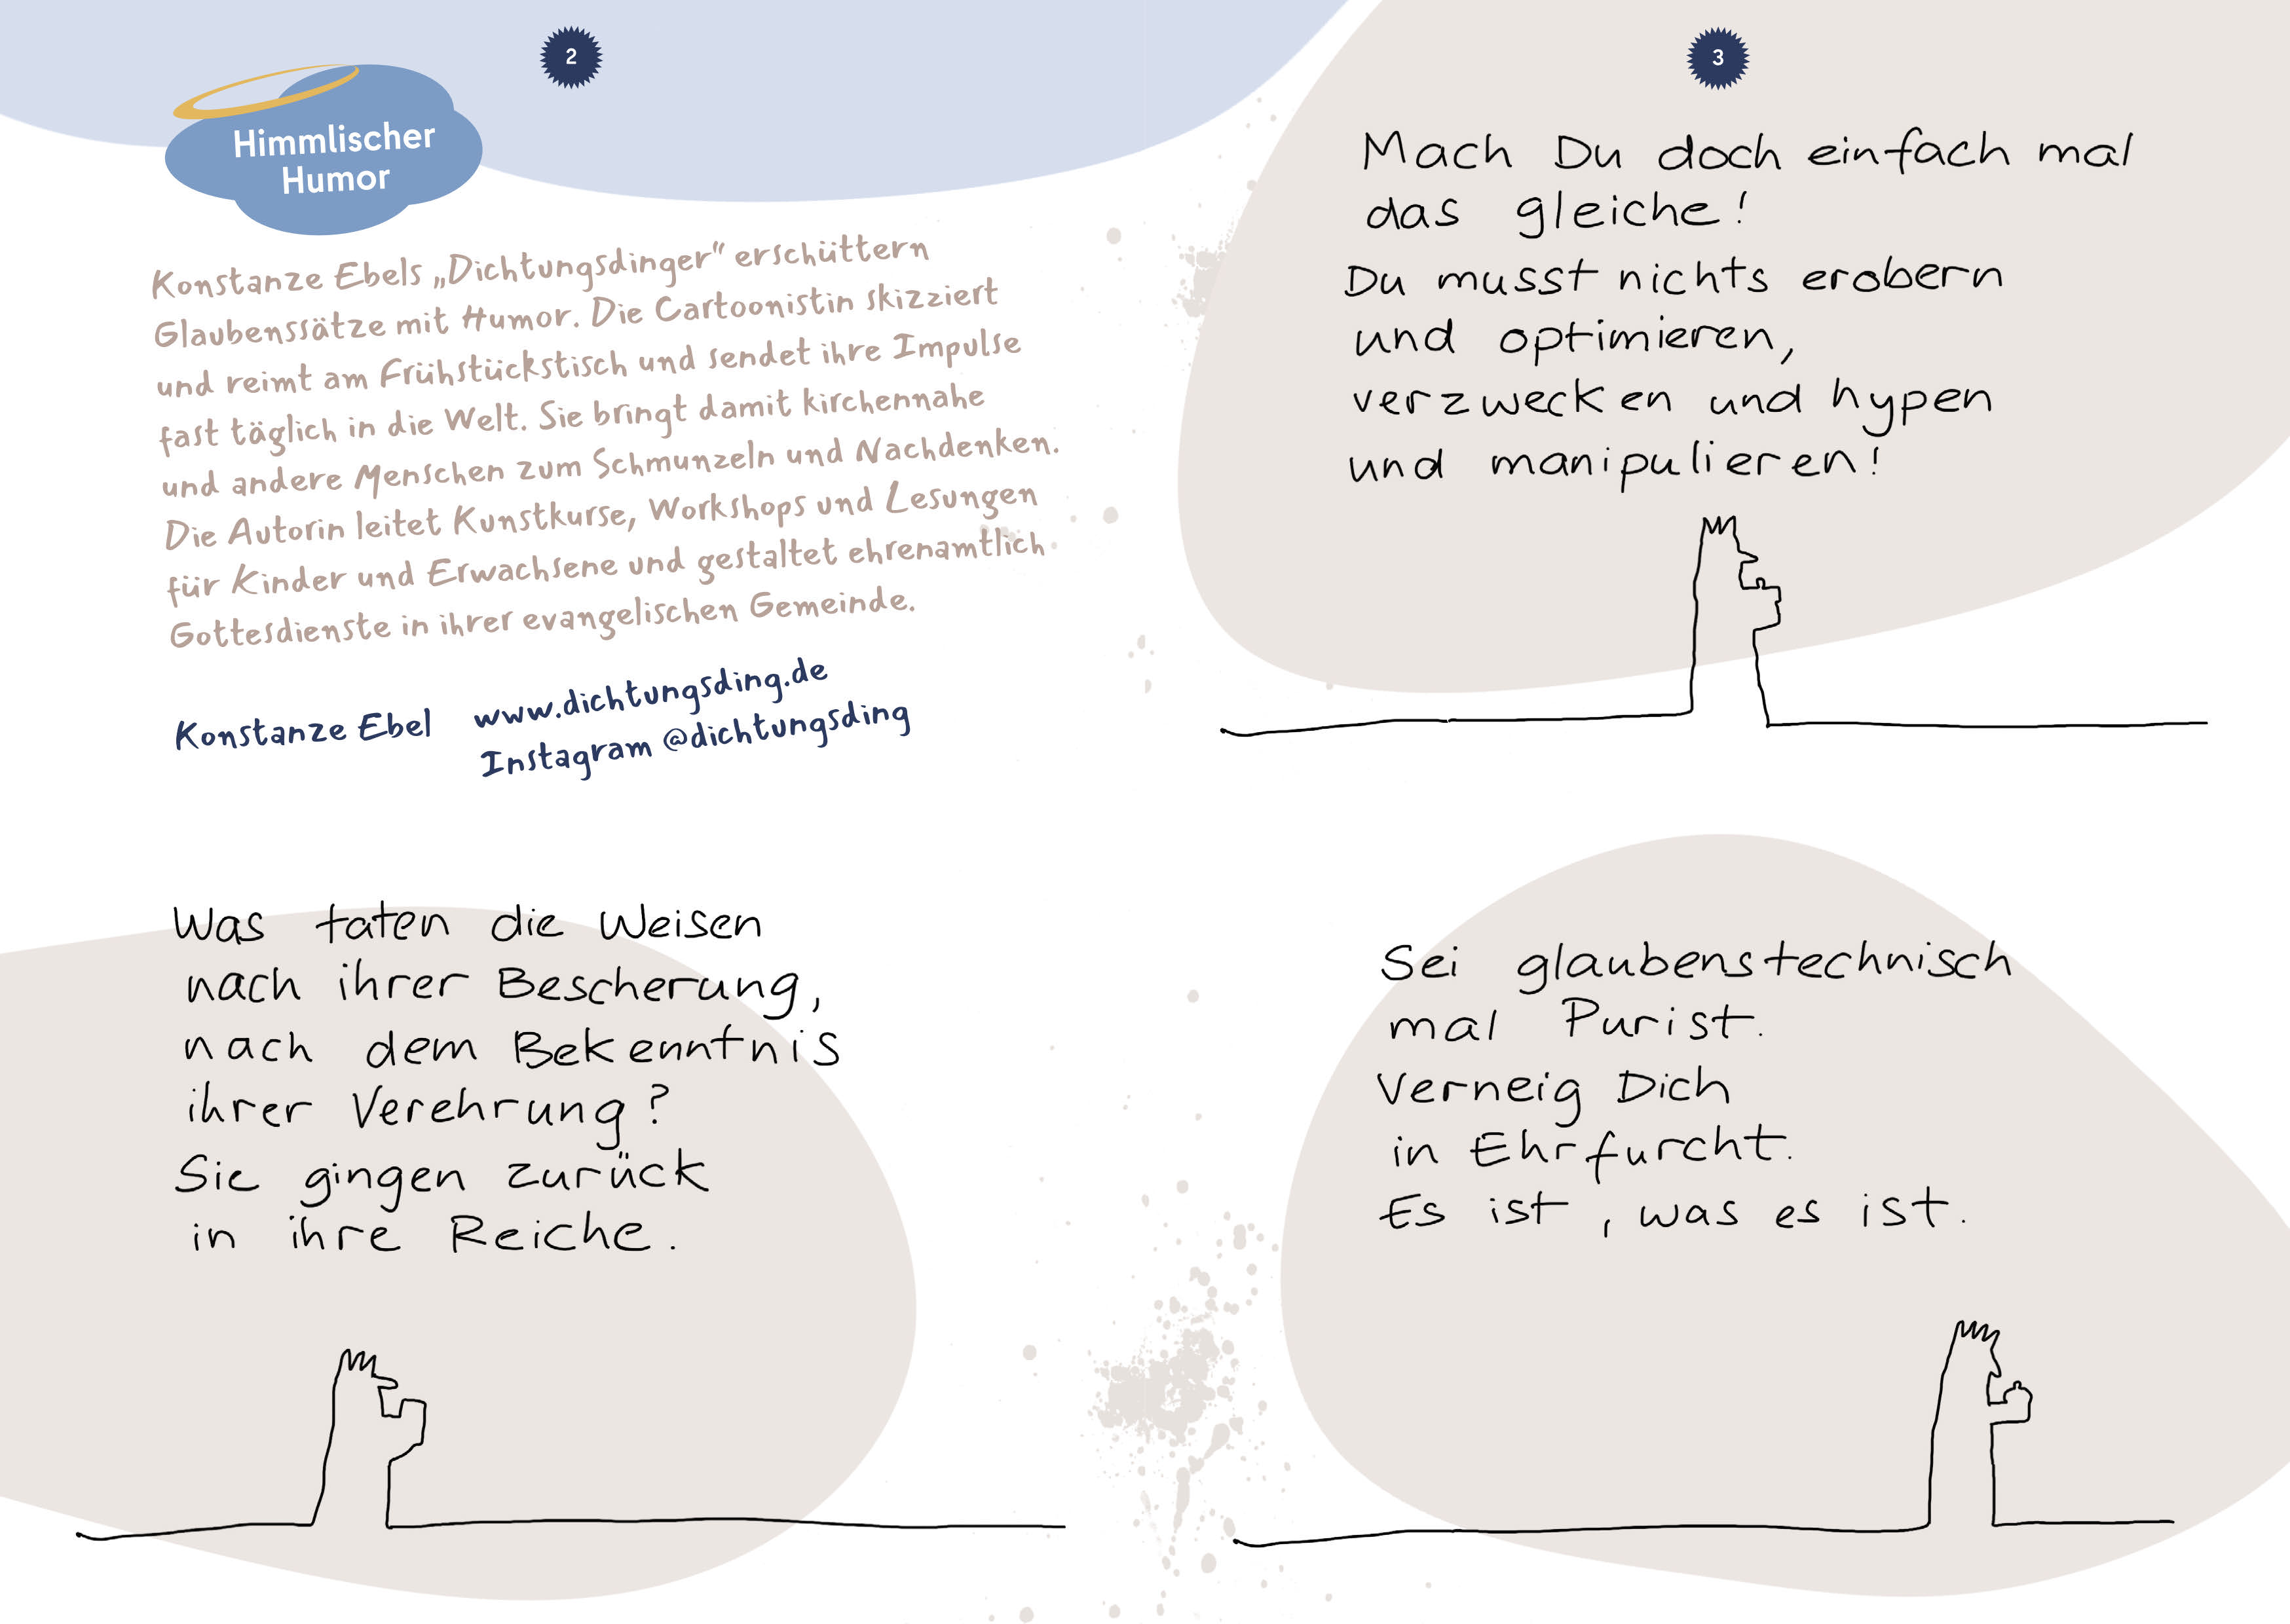 2
Himmlischer
Humor
Konstanze Ebels „Dichtungsdinger“ erschüttern
Glaubenssätze mit Humor. Die Cartoonistin skizziert
und reimt am Frühstückstisch und sendet ihre Impulse
fast täglich in die Welt. Sie bringt damit kirchennahe
und andere Menschen zum Schmunzeln und Nachdenken.
Die Autorin leitet Kunstkurse, Workshops und Lesungen
für Kinder und Erwachsene und gestaltet ehrenamtlich
Gottesdienste in ihrer evangelischen Gemeinde.
Konstanze Ebel
www.dichtungsding.de
Instagram @dichtungsding
Was taten die Weisen
nach ihrer Bescherung,
nach dem Bekenntnis
ihrer Verehrung?
Sie gingen zurück
in ihre Reiche.
3
Mach Du doch einfach mal
das gleiche!
Du musst nichts erobern
und optimieren,
verzwecken und hypen
und manipulieren!
Sei glaubenstechnisch
mal Purist.
Verneig Dich
in Ehrfurcht.
Es ist, was es ist.